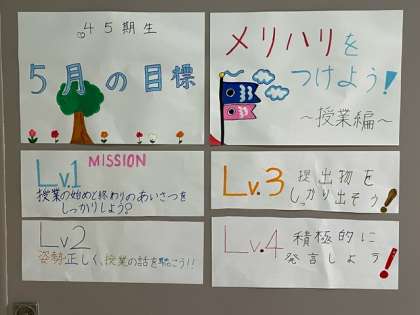 45期生
5月の目標
メリハリを
つけよう!
～授業編～
Lv.1 MISSION
授業の始めと終わりのあいさつを
しっかりしよう?
Lv2
姿勢正しく、授業の話を聴こう!!
Lv.3 提出物を
しっかり出そう!
Lv.4 積極的に
発言しよう!